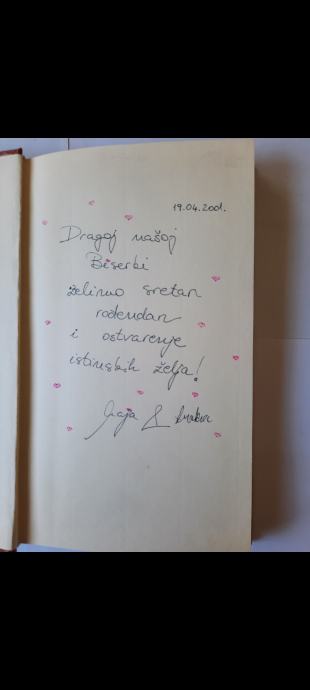 19.04.2001.
Dragoj našoj
Biserbi
želimo sretan
rođendan
i ostvarenje
istinskih želja!
Maja &